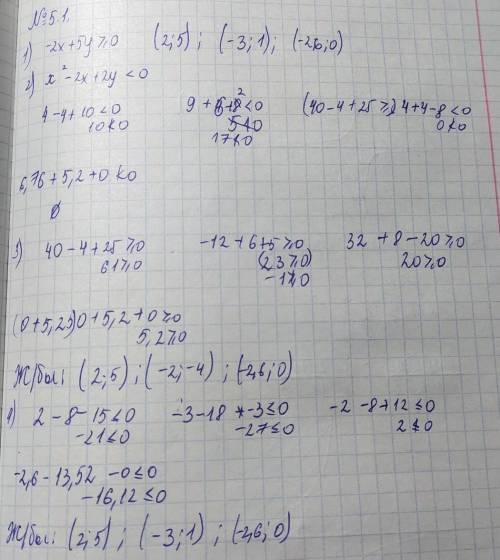 №5.1.
1) -2x+5y⩾0 (2;5) ; (-3;1); (-2,6;0)
2) x²-2x+2y<0
4-4+10<0 9+6+2<0 (40-4+25⩾) 4+4-8<0
10≮0 5≮0 0≮0
17≮0
6,76+5,2+0≮0
∅
3) 40-4+25⩾0 -12+6+5⩾0 32+8-20⩾0
61⩾0 (23⩾0) 20⩾0
-1⩾0
(0+5,25)0+5,2+0⩾0
5,2⩾0
Ж/бы: (2;5) ; (-2;-4) ; (-2,6;0)
4) 2-8-15≤0 -3-18-3≤0 -2-8+12≤0
-21≤0 -27≤0 2≰0
-2,6-13,52-0≤0
-16,12≤0
Ж/бы: (2;5) ; (-3;1) ; (-2,6;0)